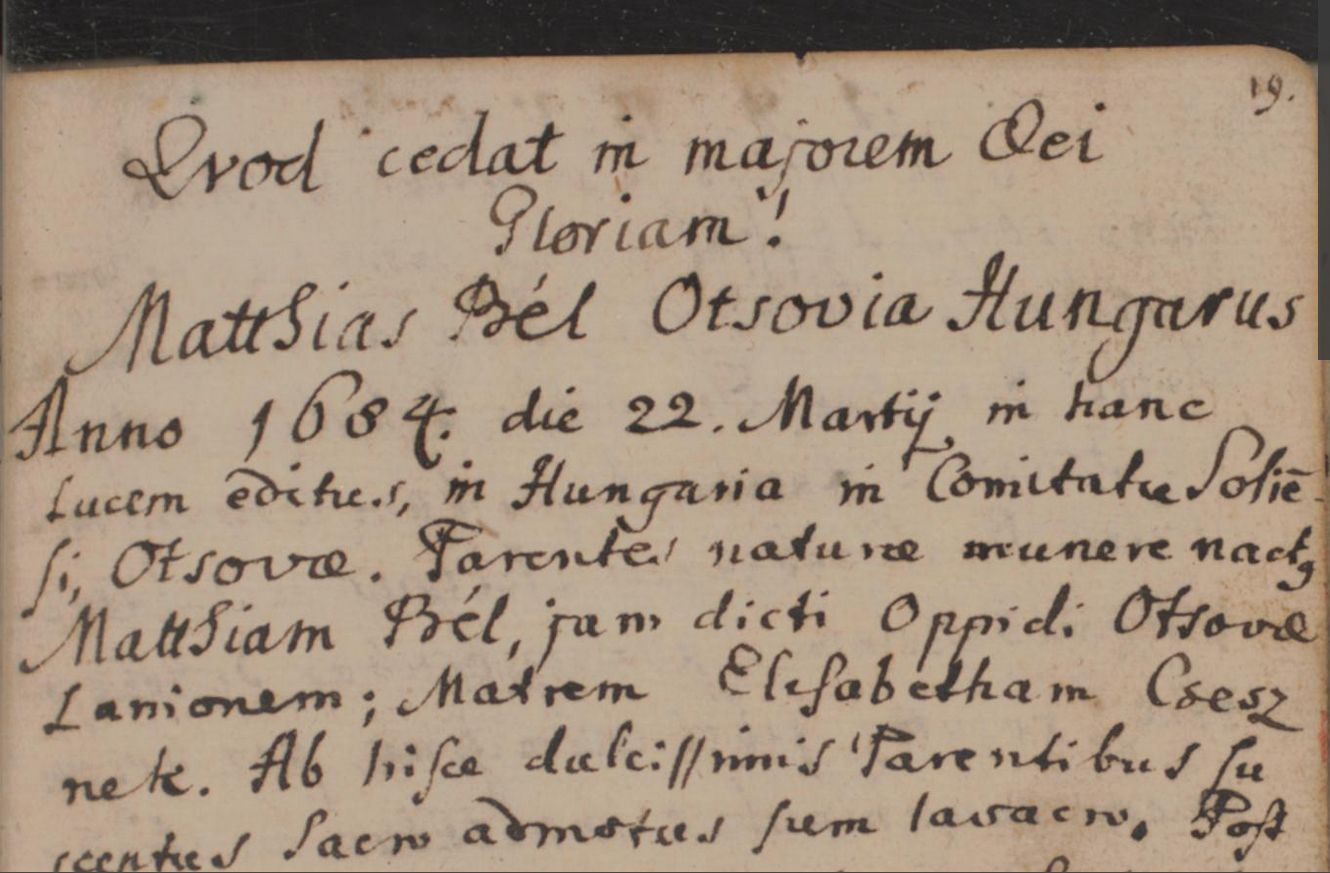 19.
Qvod cedat in majorem Dei
Gloriam!
Matthias Bél Otsovia Hungarus
Anno 1684. die 22. Martij in hanc
Lucem editus, in Hungaria in Comitatu Soliē-
si, Otsovæ. Parentes naturæ munere nactꝰ
Matthiam Bél, jam dicti Oppidi Otsovæ
Lanionem; Matrem Elisabetham Csesz
nek. Ab hisce dulcissimis Parentibus su
sceptus sacro admotus sum lavacro. Post